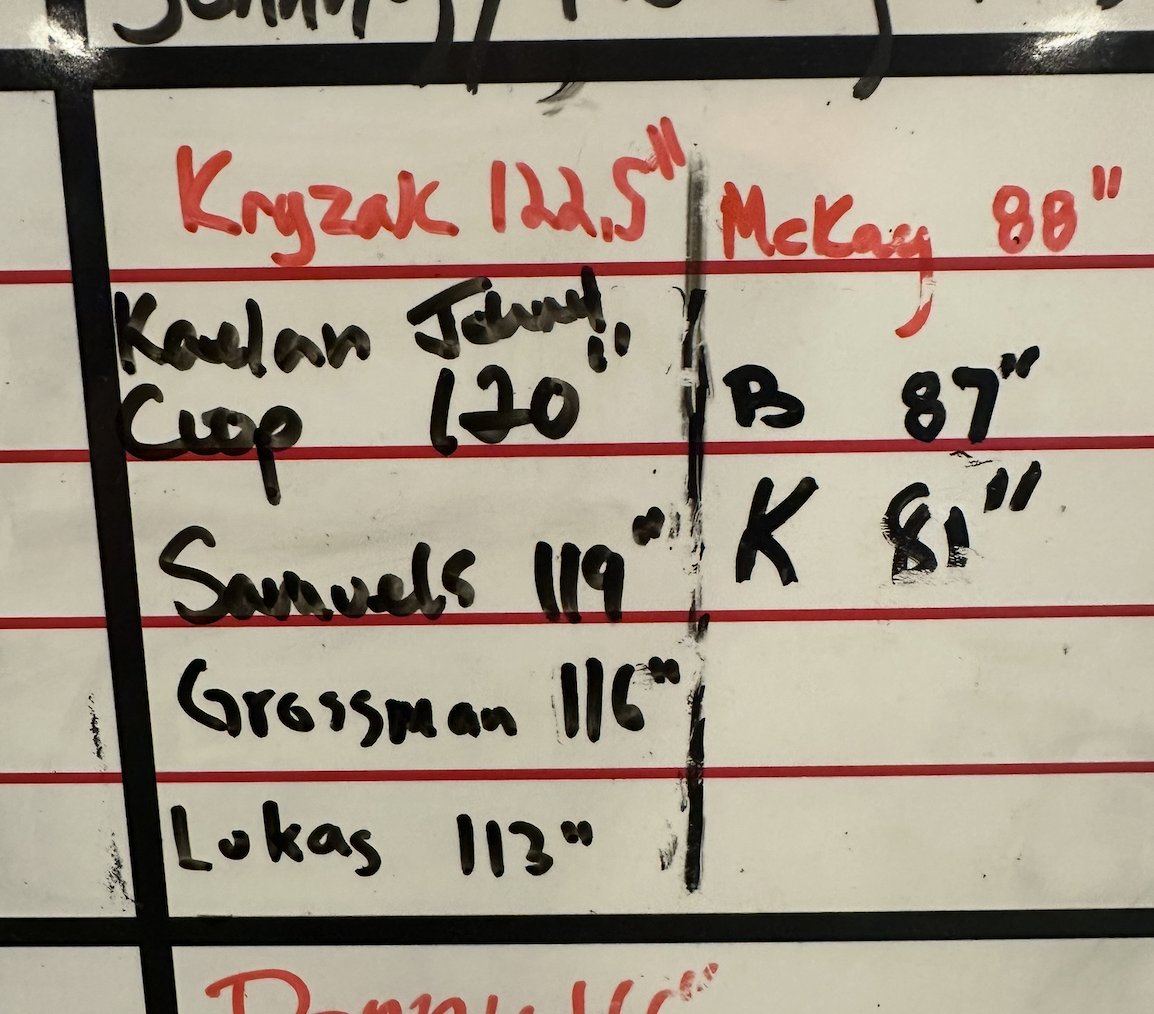 Kryzak 122.5" McKay 88"
Kaelan
120" B 87"
Samuels 119" K 81"
Grossman 116"
Lukas 113"